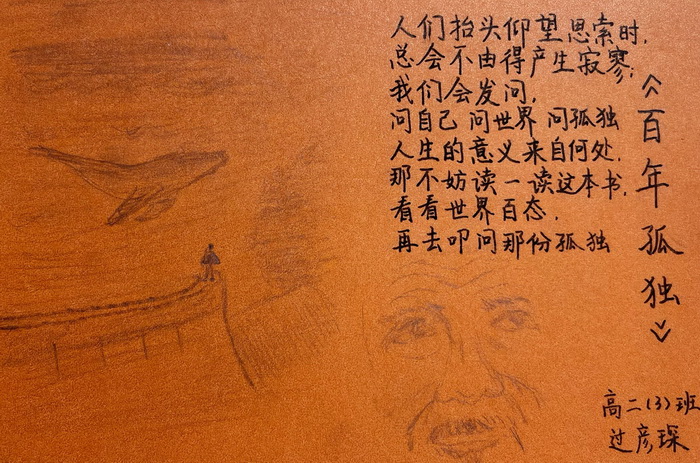 人们抬头仰望思索时，
总会不由得产生寂寥；
我们会发问，
问自己 问世界 问孤独
人生的意义来自何处，
那不妨读一读这本书，
看看世界百态，
再去叩问那份孤独
《百年孤独》
高二(3)班
过彦琛